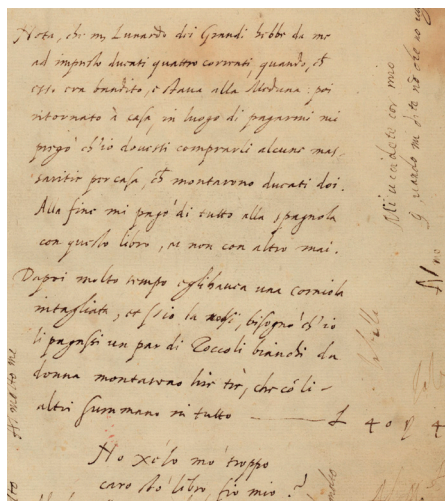 Nota, che m. Lunardo dei Grandi hebbe da me
ad impresto ducati quattro correnti, quando, ch'
esso era bandito, e stava alla Meduna; poi
ritornato à casa, in luogo di pagarmi mi
pregò ch'io dovessi comprarli alcune mas-
saritie per casa, ch' montareno ducati doi.
Alla fine mi pagò di tutto alla spagnola
con questo libro, et non con altro mai.
Dapoi molto tempo egli haveva una corniola
intagliata, et s'io la volsi, bisognò ch'io
li pagassi un par di Zoccoli bianchi da
donna montareno lire tre, che cô li-
altri summano in tutto — L 40 β 4
No xelo mo troppo
caro sto libro, fio mio?